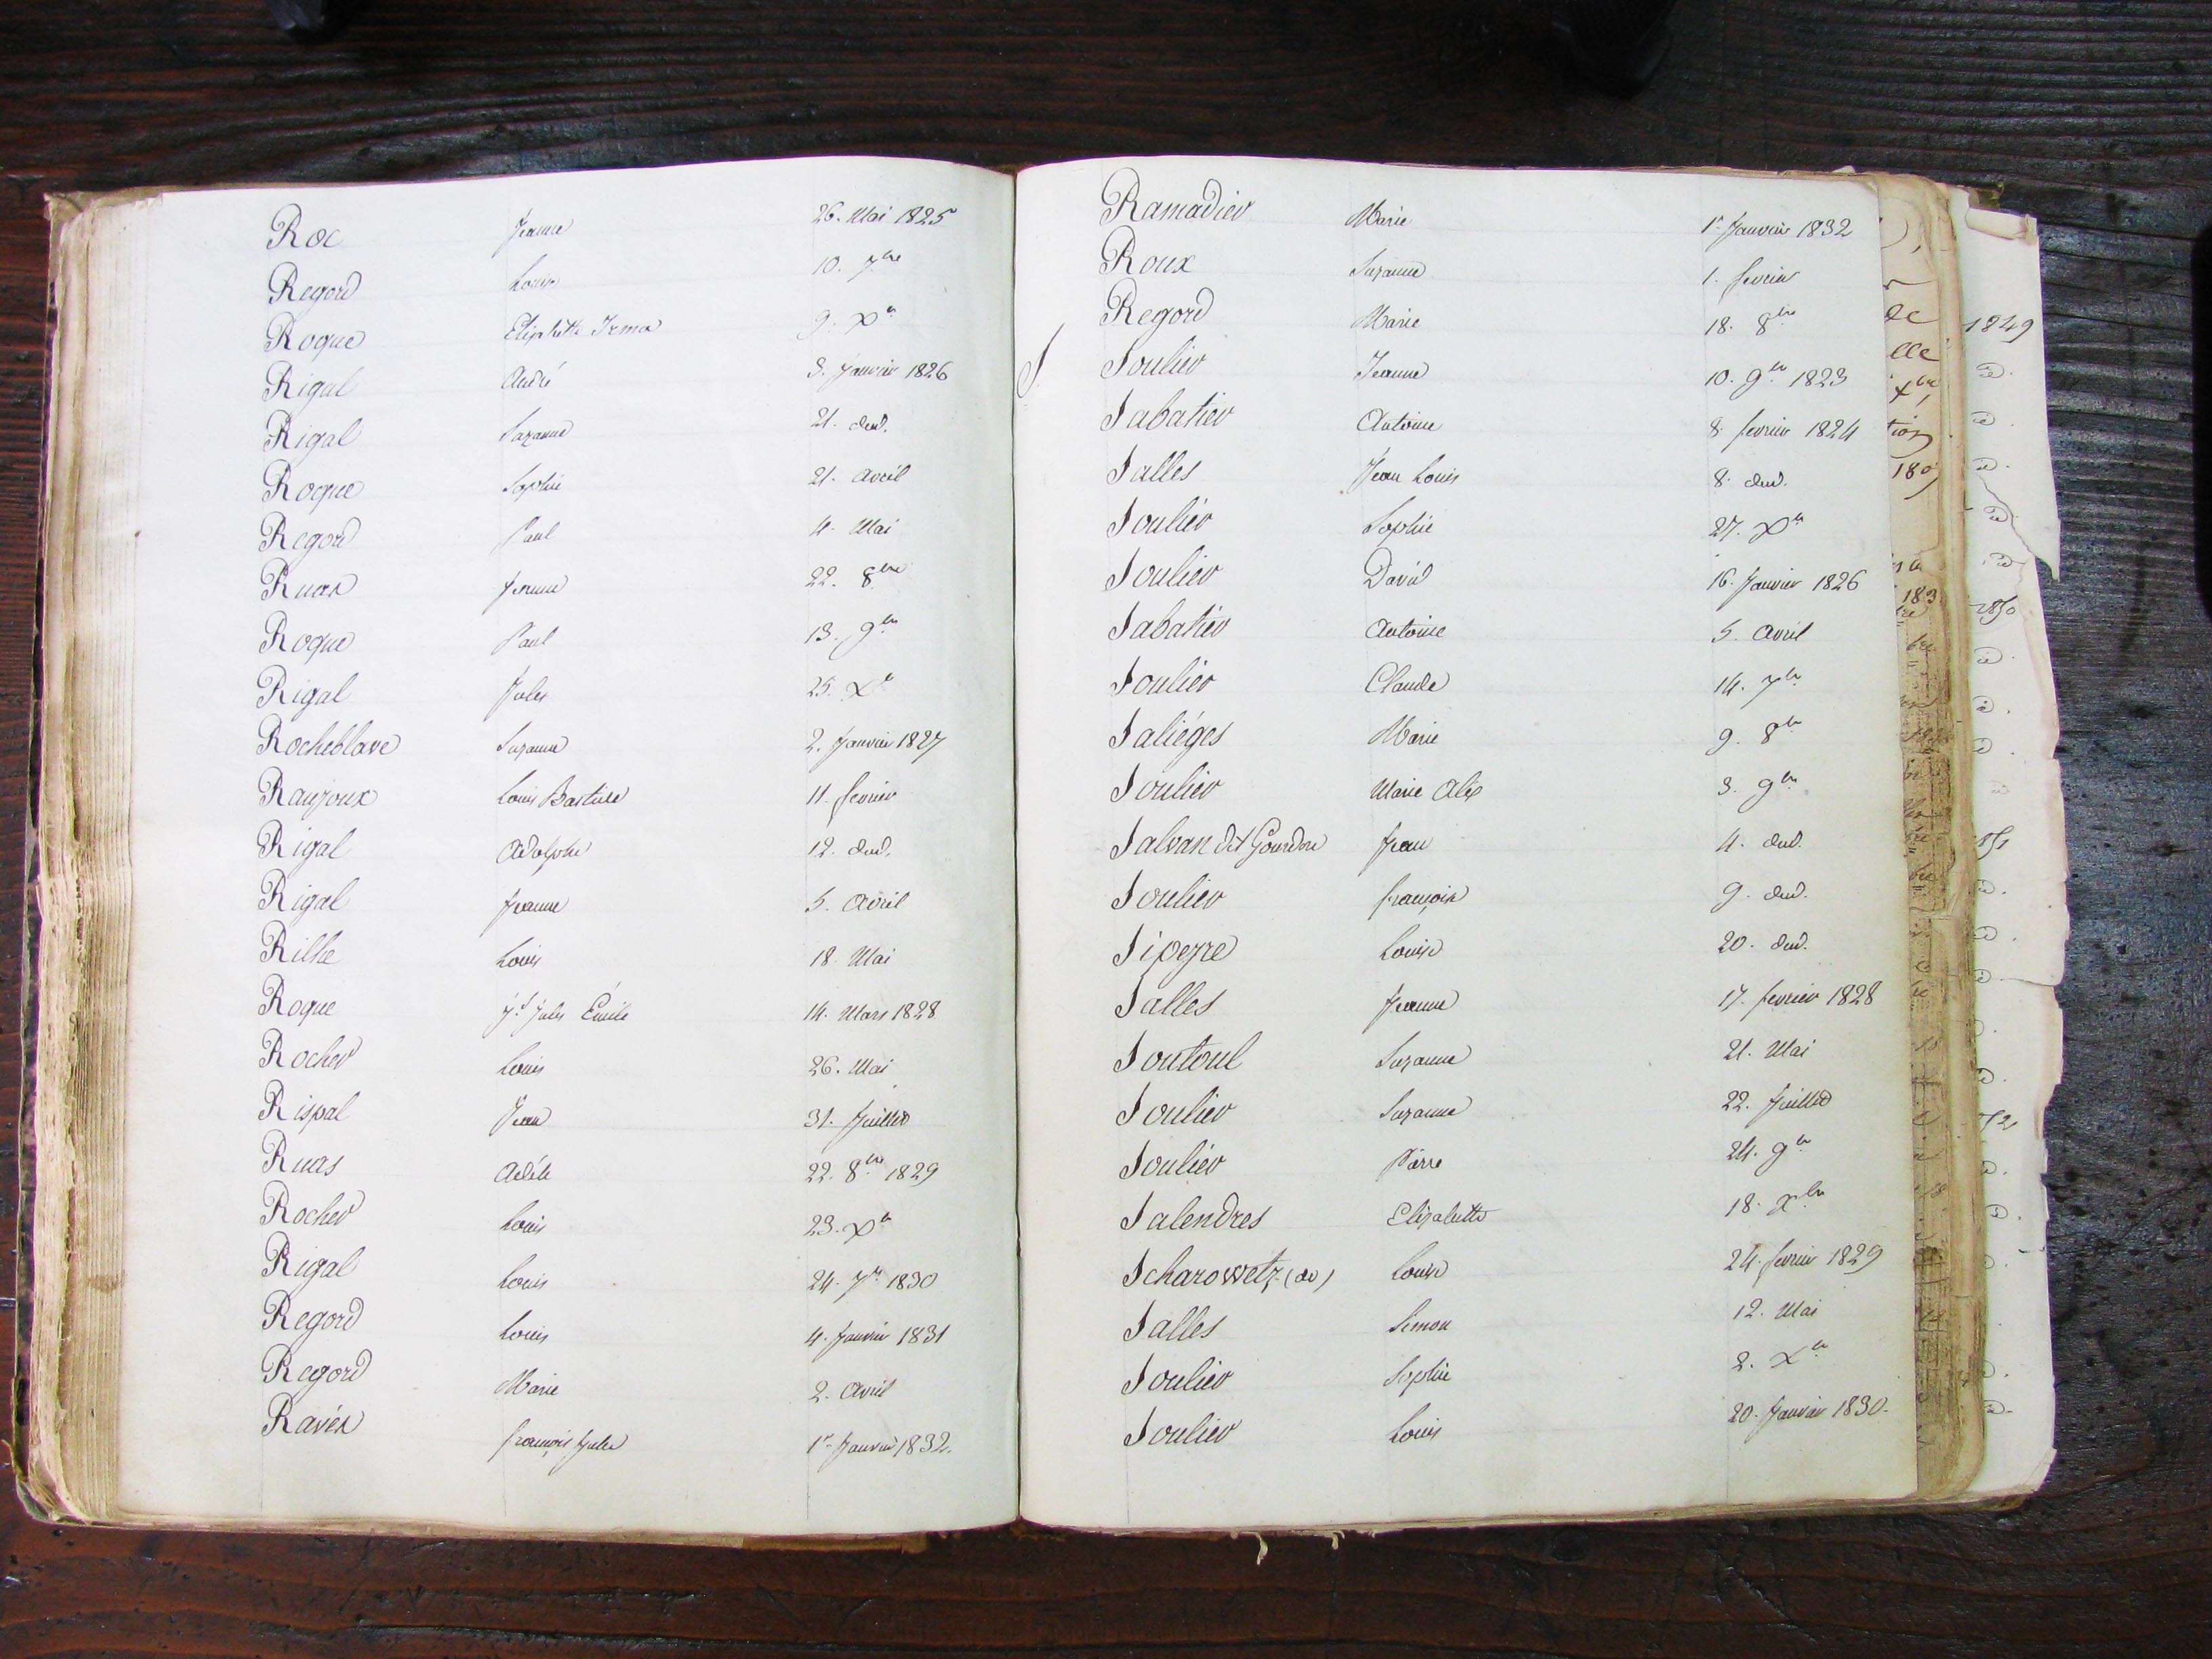 Roc Jeanne 26. Mai 1825
Regord Louis 10. 7bre
Roque Elisabeth Irma 9. Xbre
Rigal André 3. Janvier 1826
Rigal Suzanne 21. dud.
Roque Sophie 21. avril
Regord Paul 4. Mai
Ruas Jeanne 22. 8bre
Roque Paul 13. 9bre
Rigal Jules 25. Xbre
Rocheblave Suzanne 2. Janvier 1827
Raujoux Louis Bastide 11. fevrier
Rigal Adolphe 12. dud.
Rigal Jeanne 5. Avril
Rilhe Louis 18. Mai
Roque Jn Jules Émile 14. Mars 1828
Rocher Louis 26. Mai
Rispal Jean 31. Juillet
Ruas Adèle 22. 8bre 1829
Rocher Louis 23. Xbre
Rigal Louis 24. 7bre 1830
Regord Louis 4. Janvier 1831
Regord Marie 2. Avril
Ravés françois Jules 1er Janvier 1832.
Ramadier Marie 1er Janvier 1832
Roux Suzanne 1. fevrier
Regord Marie 18. 8bre
S. Soulier Jeanne 10. 9bre 1823
Sabatier Antoine 8 fevrier 1824
Salles Jean Louis 8. dud.
Soulier Sophie 27. Xbre
Soulier David 16. Janvier 1826
Sabatier Antoine 5. Avril
Soulier Claude 14. 7bre
Saliéges Marie 9. 8bre
Soulier Marie Alix 3. 9bre
Salvan dit Gourdon Jean 4. dud.
Soulier françois 9. dud.
Sipeyre Louise 20. dud.
Salles Jeanne 17. fevrier 1828
Soutoul Suzanne 21. Mai
Soulier Suzanne 22. Juillet
Soulier Pierre 24. 9bre
Salendres Elizabette 18. Xbre
Scharowetz (de) Louise 24. fevrier 1829
Salles Simon 12. Mai
Soulier Sophie 2. Xbre
Soulier Louis 20. Janvier 1830.
1849